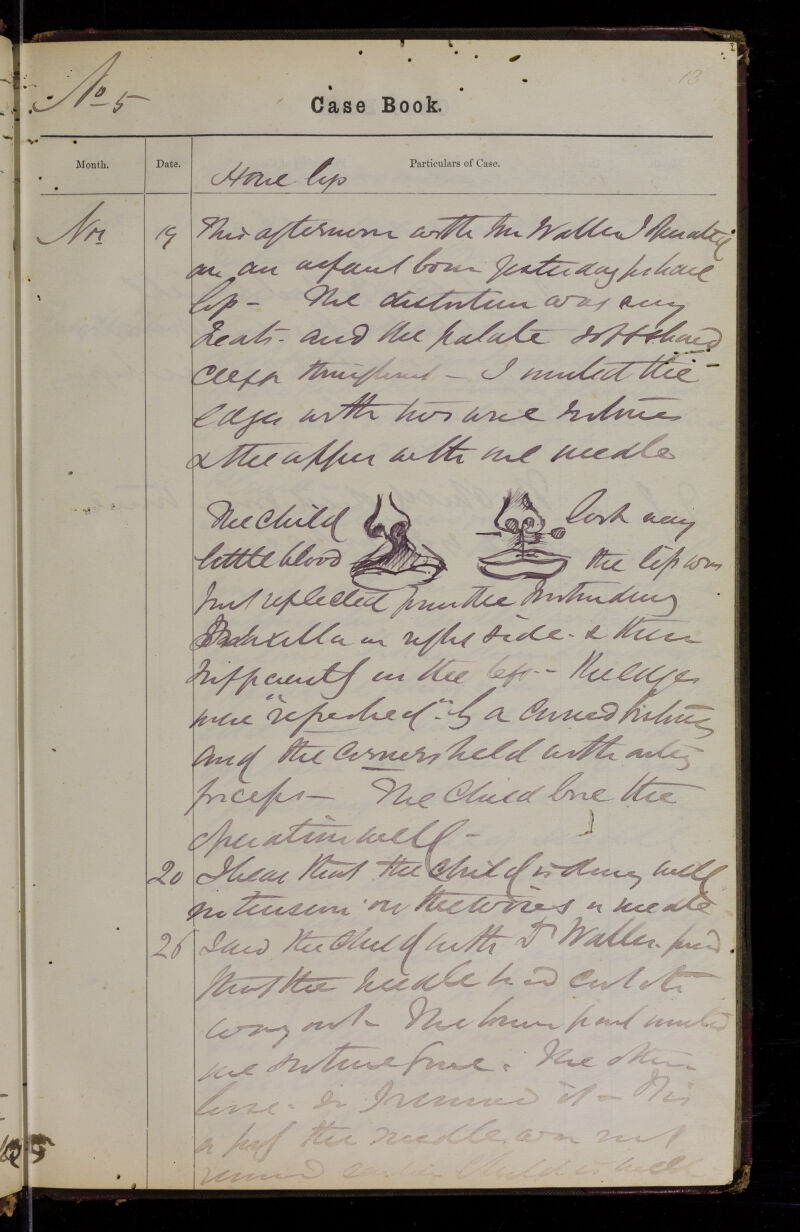 No 5
13
Case Book.
Month. Date. Particulars of Case.
Hare lip
Nov 19 This afternoon with Mr Waller I operated
on an infant born yesterday for hare
lip - The distortion was very
great - and the palate soft & hard
cleft throughout - I united the
edges with two wire sutures
& the upper with one needle
The child lost very
little blood the lip was
first reflected from the protruding
on right side - & then
sufficiently on the left - the edges
were "refreshed" by a curved bistoury
and the corners held with artery
forceps - The child bore the
operation well -
20 I hear that the child is doing well
no tension on the wires or needle
26 I saw the child with Dr Waller - find
that the needle had cut its
way out - The lower part united
one suture firm. The other
loose - so I removed it - It is
a pity the needle was not
removed earlier Child is well